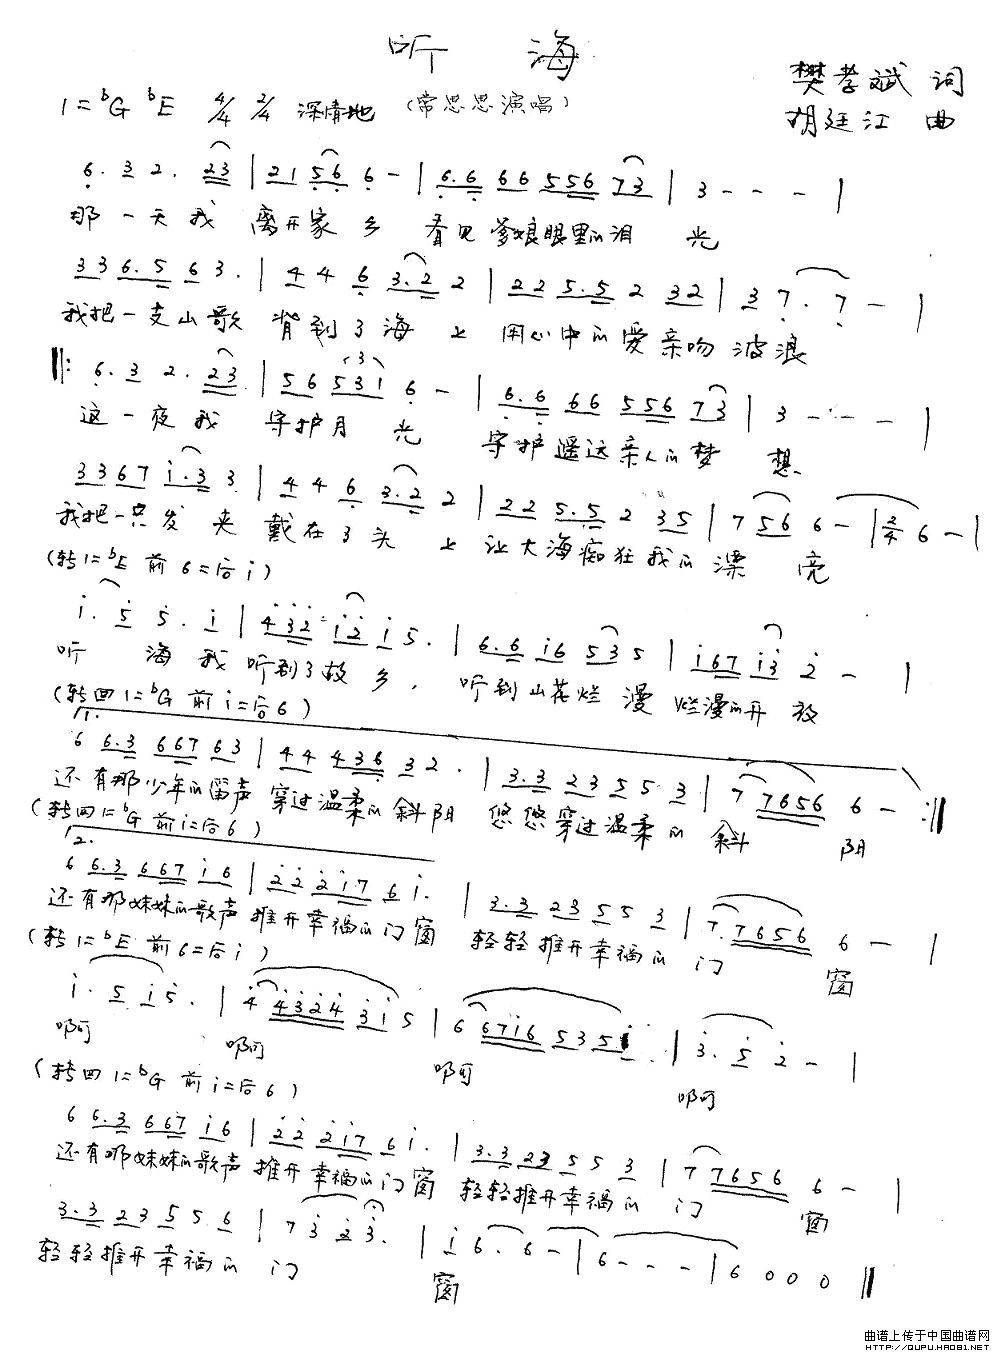 听 海
樊孝斌 词
1=ᵇG ᵇE 4/4 2/4 深情地 (常思思演唱)
胡廷江 曲
6. 3 2. 23 | 21 56 6 - | 6.6 66 556 73 | 3 - - - |
那一天我 离开家乡 看见爹娘眼里的泪 光
3 3 6.5 6 3. | 4 4 6 3.2 2 | 22 5.5 2 32 | 3 7. 7 - |
我把一支山歌 背到了海 上 用心中的爱亲吻波浪
‖: 6. 3 2. 23 | 56 531 6 - | 6.6 66 556 73 | 3 - - - |
这一夜我 守护月 光 守护遥远亲人的梦 想
3367 i.3 3 | 4 4 6 3.2 2 | 22 5.5 2 35 | 7 56 6 - | 2/4 6 - |
我把一只发 夹 戴在了头 上 让大海痴狂我的漂 亮
(转1=ᵇE 前6=后i)
i. 5 5. i | 432 i2 i 5. | 6.6 i6 53 5 | i67 i3 2 - |
听 海我 听到了故乡, 听到山花烂 漫 烂漫的开 放
(转回1=ᵇG 前i=后6)
1.
6 6.3 667 63 | 44 436 32. | 3.3 23 5 5 3 | 7 7656 6 - :‖
还有那少年的笛声 穿过温柔的 斜阳 悠悠穿过温柔的 斜 阳
(转回1=ᵇG 前i=后6)
2.
6 6.3 667 i6 | 22 2i7 6 i. | 3.3 23 5 5 3 | 7. 7656 6 - |
还有那妹妹的歌声 推开幸福的门窗 轻轻推开幸福的 门 窗
(转1=ᵇE 前6=后i)
i. 5 i5. | 4 4324 3i 5 | 6 67i6 535 | 3. 5 2 - |
啊 啊 啊 啊
(转回1=ᵇG 前i=后6)
6 6.3 667 i6 | 22 2i7 6 i. | 3.3 23 5 5 3 | 7 7656 6 - |
还有那妹妹的歌声 推开幸福的门窗 轻轻推开幸福的 门 窗
3.3 23 5 5 6 | 7 3 2 3. | i 6. 6 - | 6 - - - | 6 0 0 0 ‖
轻轻推开幸福的 门 窗
曲谱上传于中国曲谱网
HTTP://QUPU.HAO81.NET